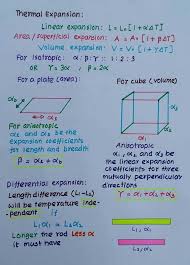 Thermal Expansion:
Linear expansion: L = L₀[1+αΔT]
Area / superficial expansion: A = A₀[1+βΔT]
Volume expansion: V = V₀[1+γΔT]
For isotropic: α : β : γ :: 1 : 2 : 3
or γ = 3α, β = 2α
For a plate (area):
For cube (volume)
α₂
α₁
For anisotropic
α₁ and α₂ be the
expansion coefficients
for length and breadth
β = α₁ + α₂
Anisotropic
α₁, α₂ and α₃ be
the linear expansion
coefficients for three
mutually perpendicular
directions
γ = α₁ + α₂ + α₃
Differential expansion:
Length difference (L₁-L₂)
will be temperature inde-
pendent if
L₁α₁ = L₂α₂
Longer the rod less α
it must have
L₁, α₁
L₂, α₂